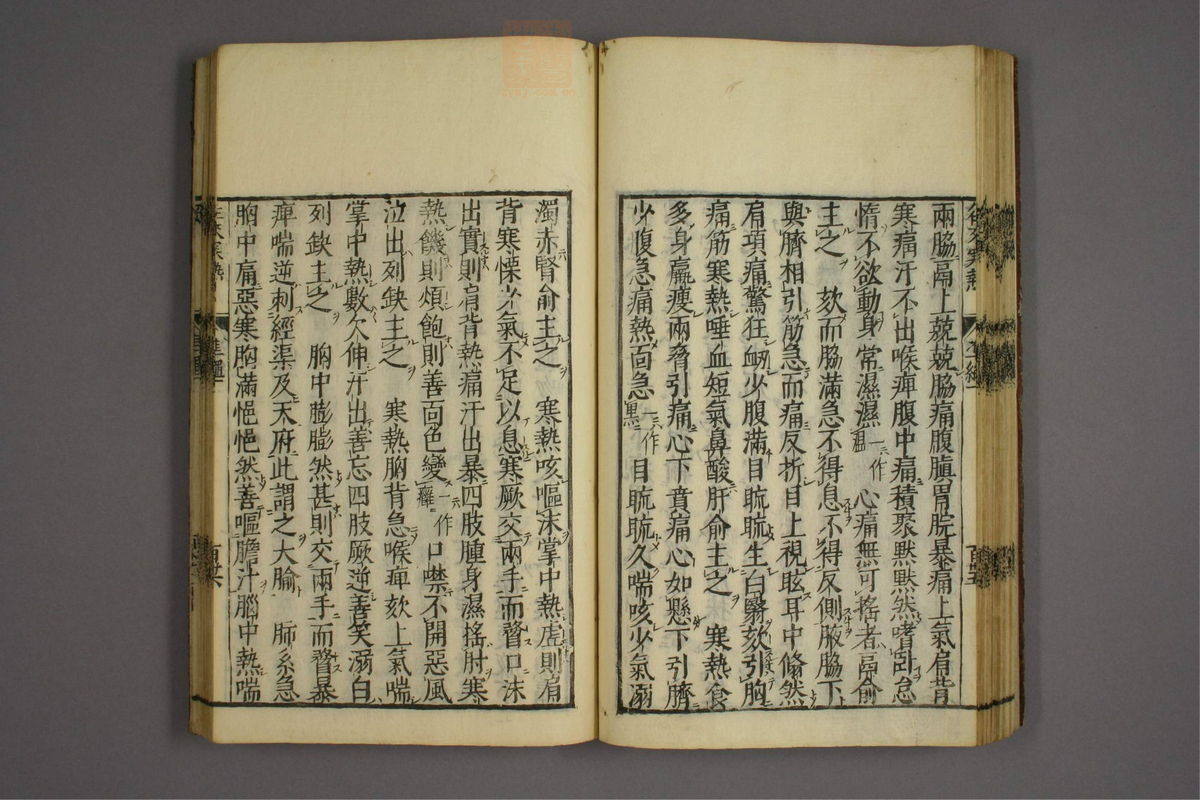 兩脇鬲上兢兢脇痛腹䐜胃脘暴痛上氣肩背
寒痛汗不出喉痺腹中痛積聚默默然嗜臥怠
惰不欲動身常濕濕一作心痛無可搖者鬲俞
主之　欬而脇滿急不得息不得反側腋脇下
與臍相引筋急而痛反折目上視眩耳中倏然
肩項痛驚狂衂少腹滿目䀮䀮生白翳欬引胸
痛筋寒熱唾血短氣鼻酸肝俞主之　寒熱食
多身羸瘦兩脅引痛心下賁痛心如懸下引臍
少腹急痛熱面急一作黑目䀮䀮久喘咳少氣溺
濁赤腎俞主之　寒熱咳嘔沫掌中熱虛則肩
背寒慄少氣不足以息寒厥交兩手而瞀口沫
出實則肩背熱痛汗出暴四肢腫身濕搖肘寒
熱饑則煩飽則善面色變一作癰口噤不開惡風
泣出列缺主之　寒熱胸背急喉痺欬上氣喘
掌中熱數欠伸汗出善忘四肢厥逆善笑溺白
列缺主之　胸中膨膨然甚則交兩手而瞀暴
痺喘逆刺經渠及天府此謂之大腧　肺系急
胸中痛惡寒胸滿悒悒然善嘔膽汁胸中熱喘